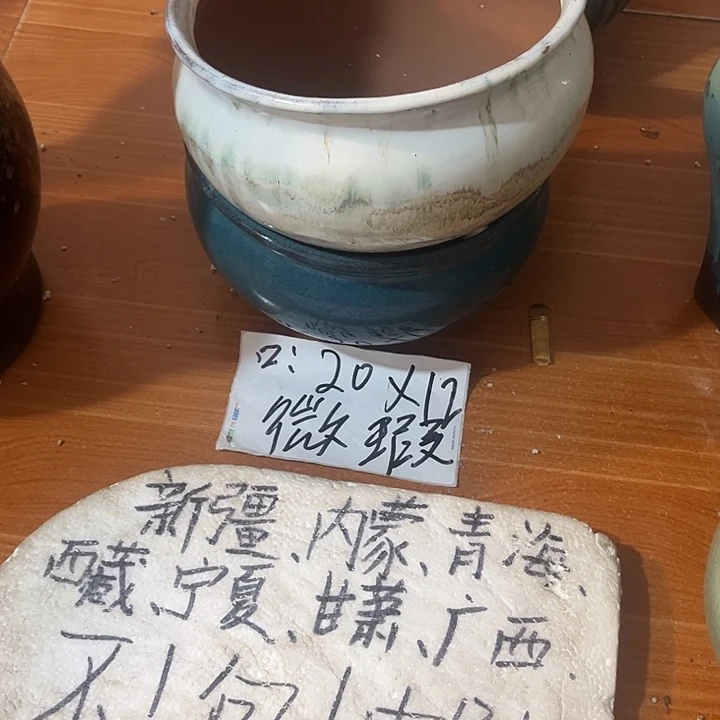 口：20X12
微瑕
新疆、内蒙、青海、
西藏、宁夏、甘肃、广西
不